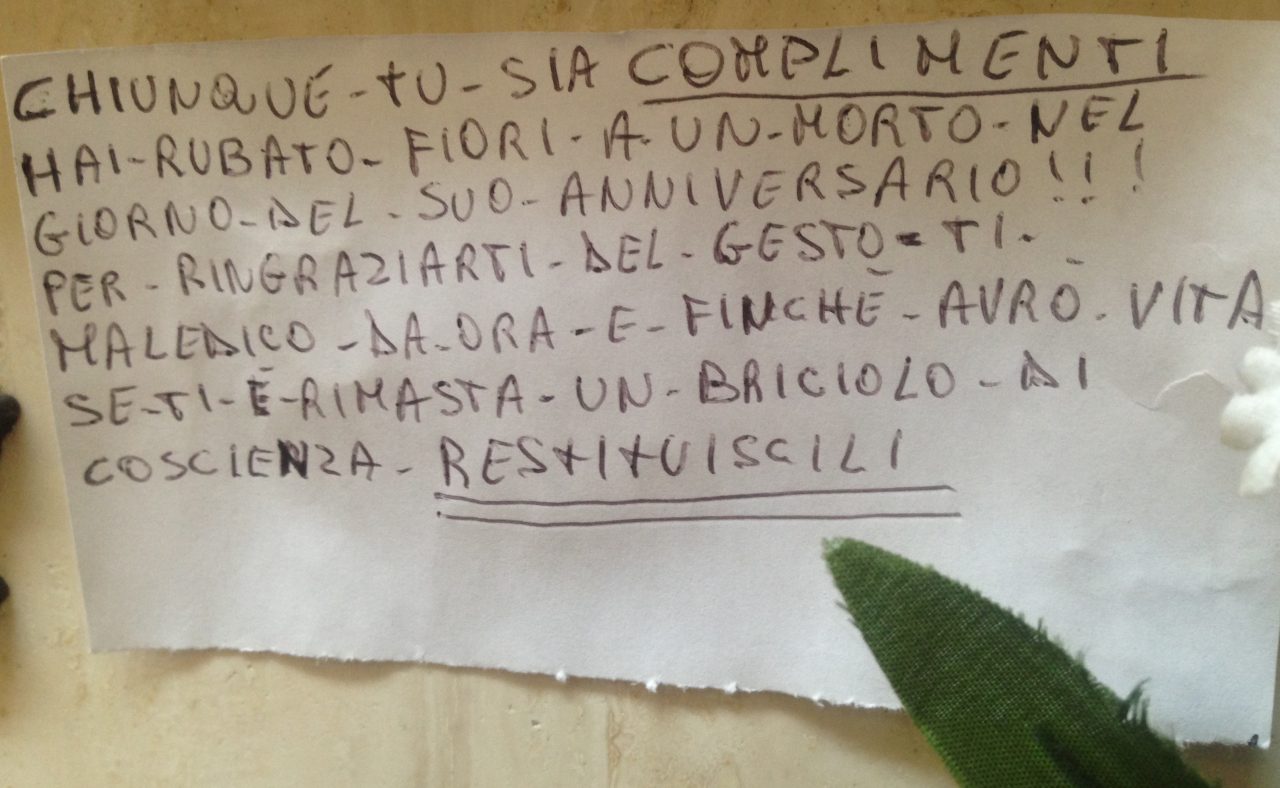 CHIUNQUE-TU-SIA COMPLIMENTI
HAI-RUBATO-FIORI-A-UN-MORTO-NEL
GIORNO-DEL-SUO-ANNIVERSARIO!!!
PER-RINGRAZIARTI-DEL-GESTO-TI-
MALEDICO-DA-ORA-E-FINCHĒ-AVRŌ-VITA
SE-TI-Ē-RIMASTA-UN-BRICIOLO-DI
COSCIENZA-RESTITUISCILI